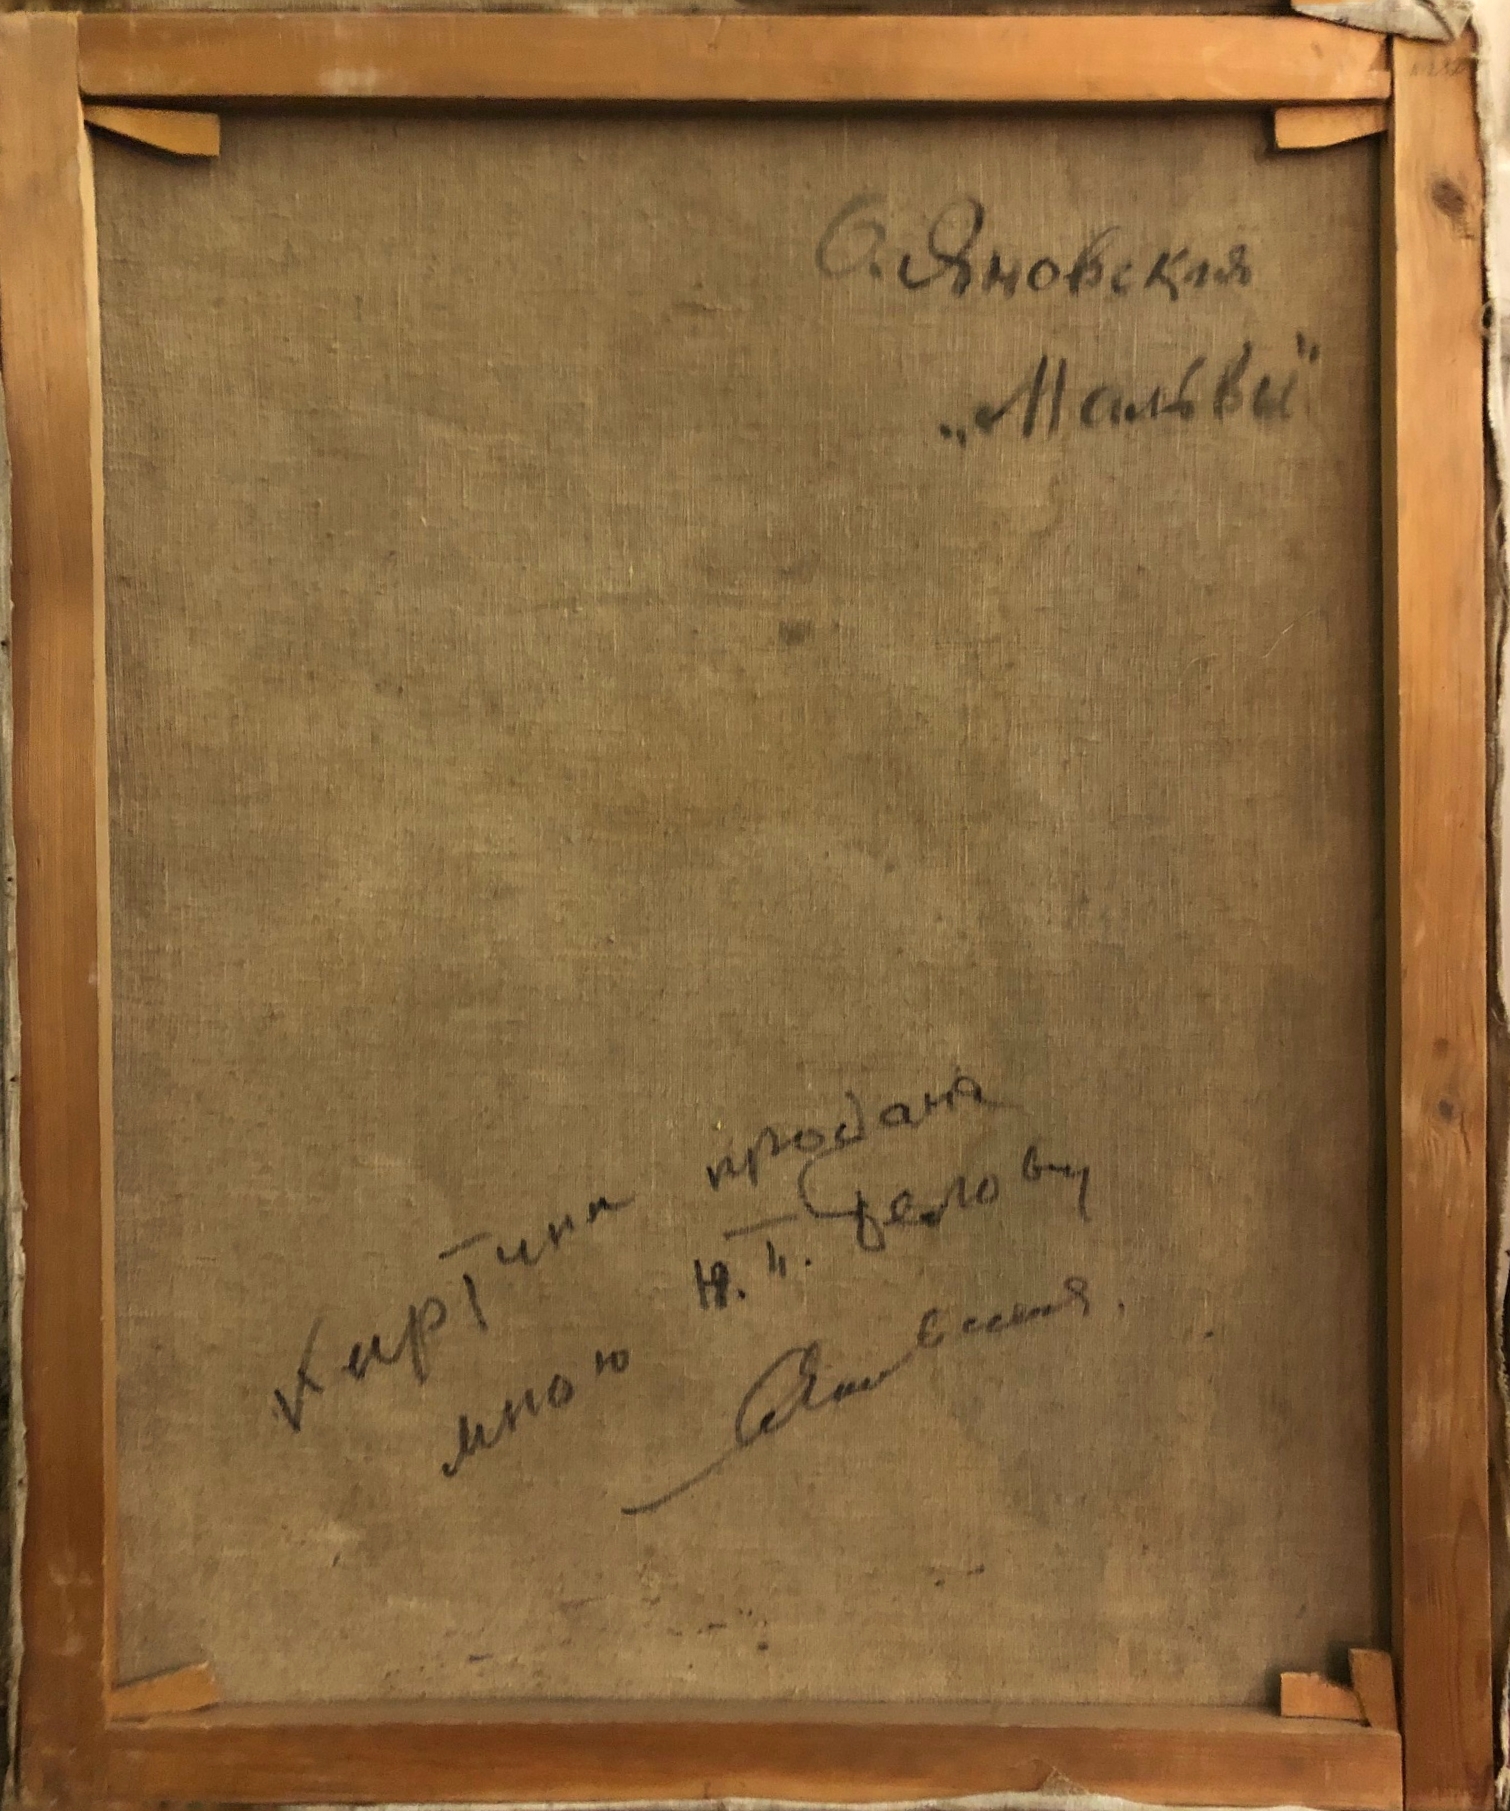 О. Яновская
„Мальвы"
Картина продана
мною Ю. П. Белову
Яновская.